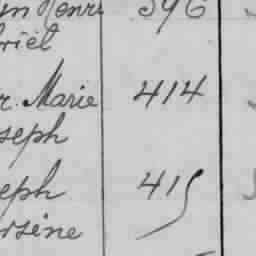 Henri 396
riel
r. Marie 414
seph
eph 415
rsène